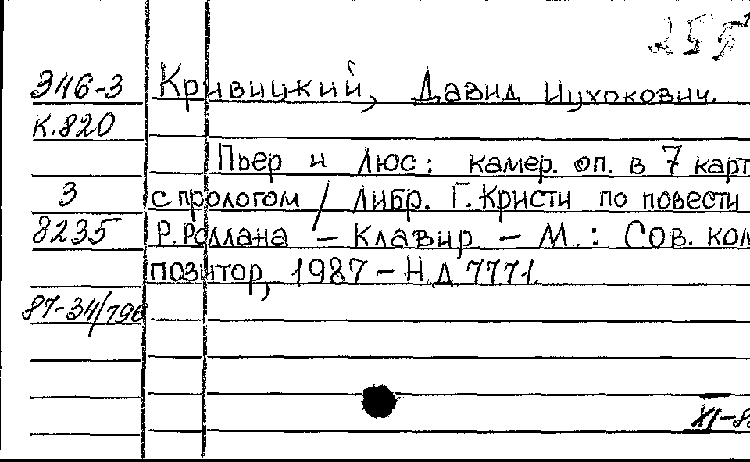 255
Э46-3 Кривицкий, Давид Ицхокович.
К.820
Пьер и Люс: камер. оп. в 7 карт
3 с прологом / Либр. Г. Кристи по повести
8235 Р. Роллана – Клавир – М.: Сов. ком
позитор, 1987 – Н.Д 7771.
87-34/796
XI-8